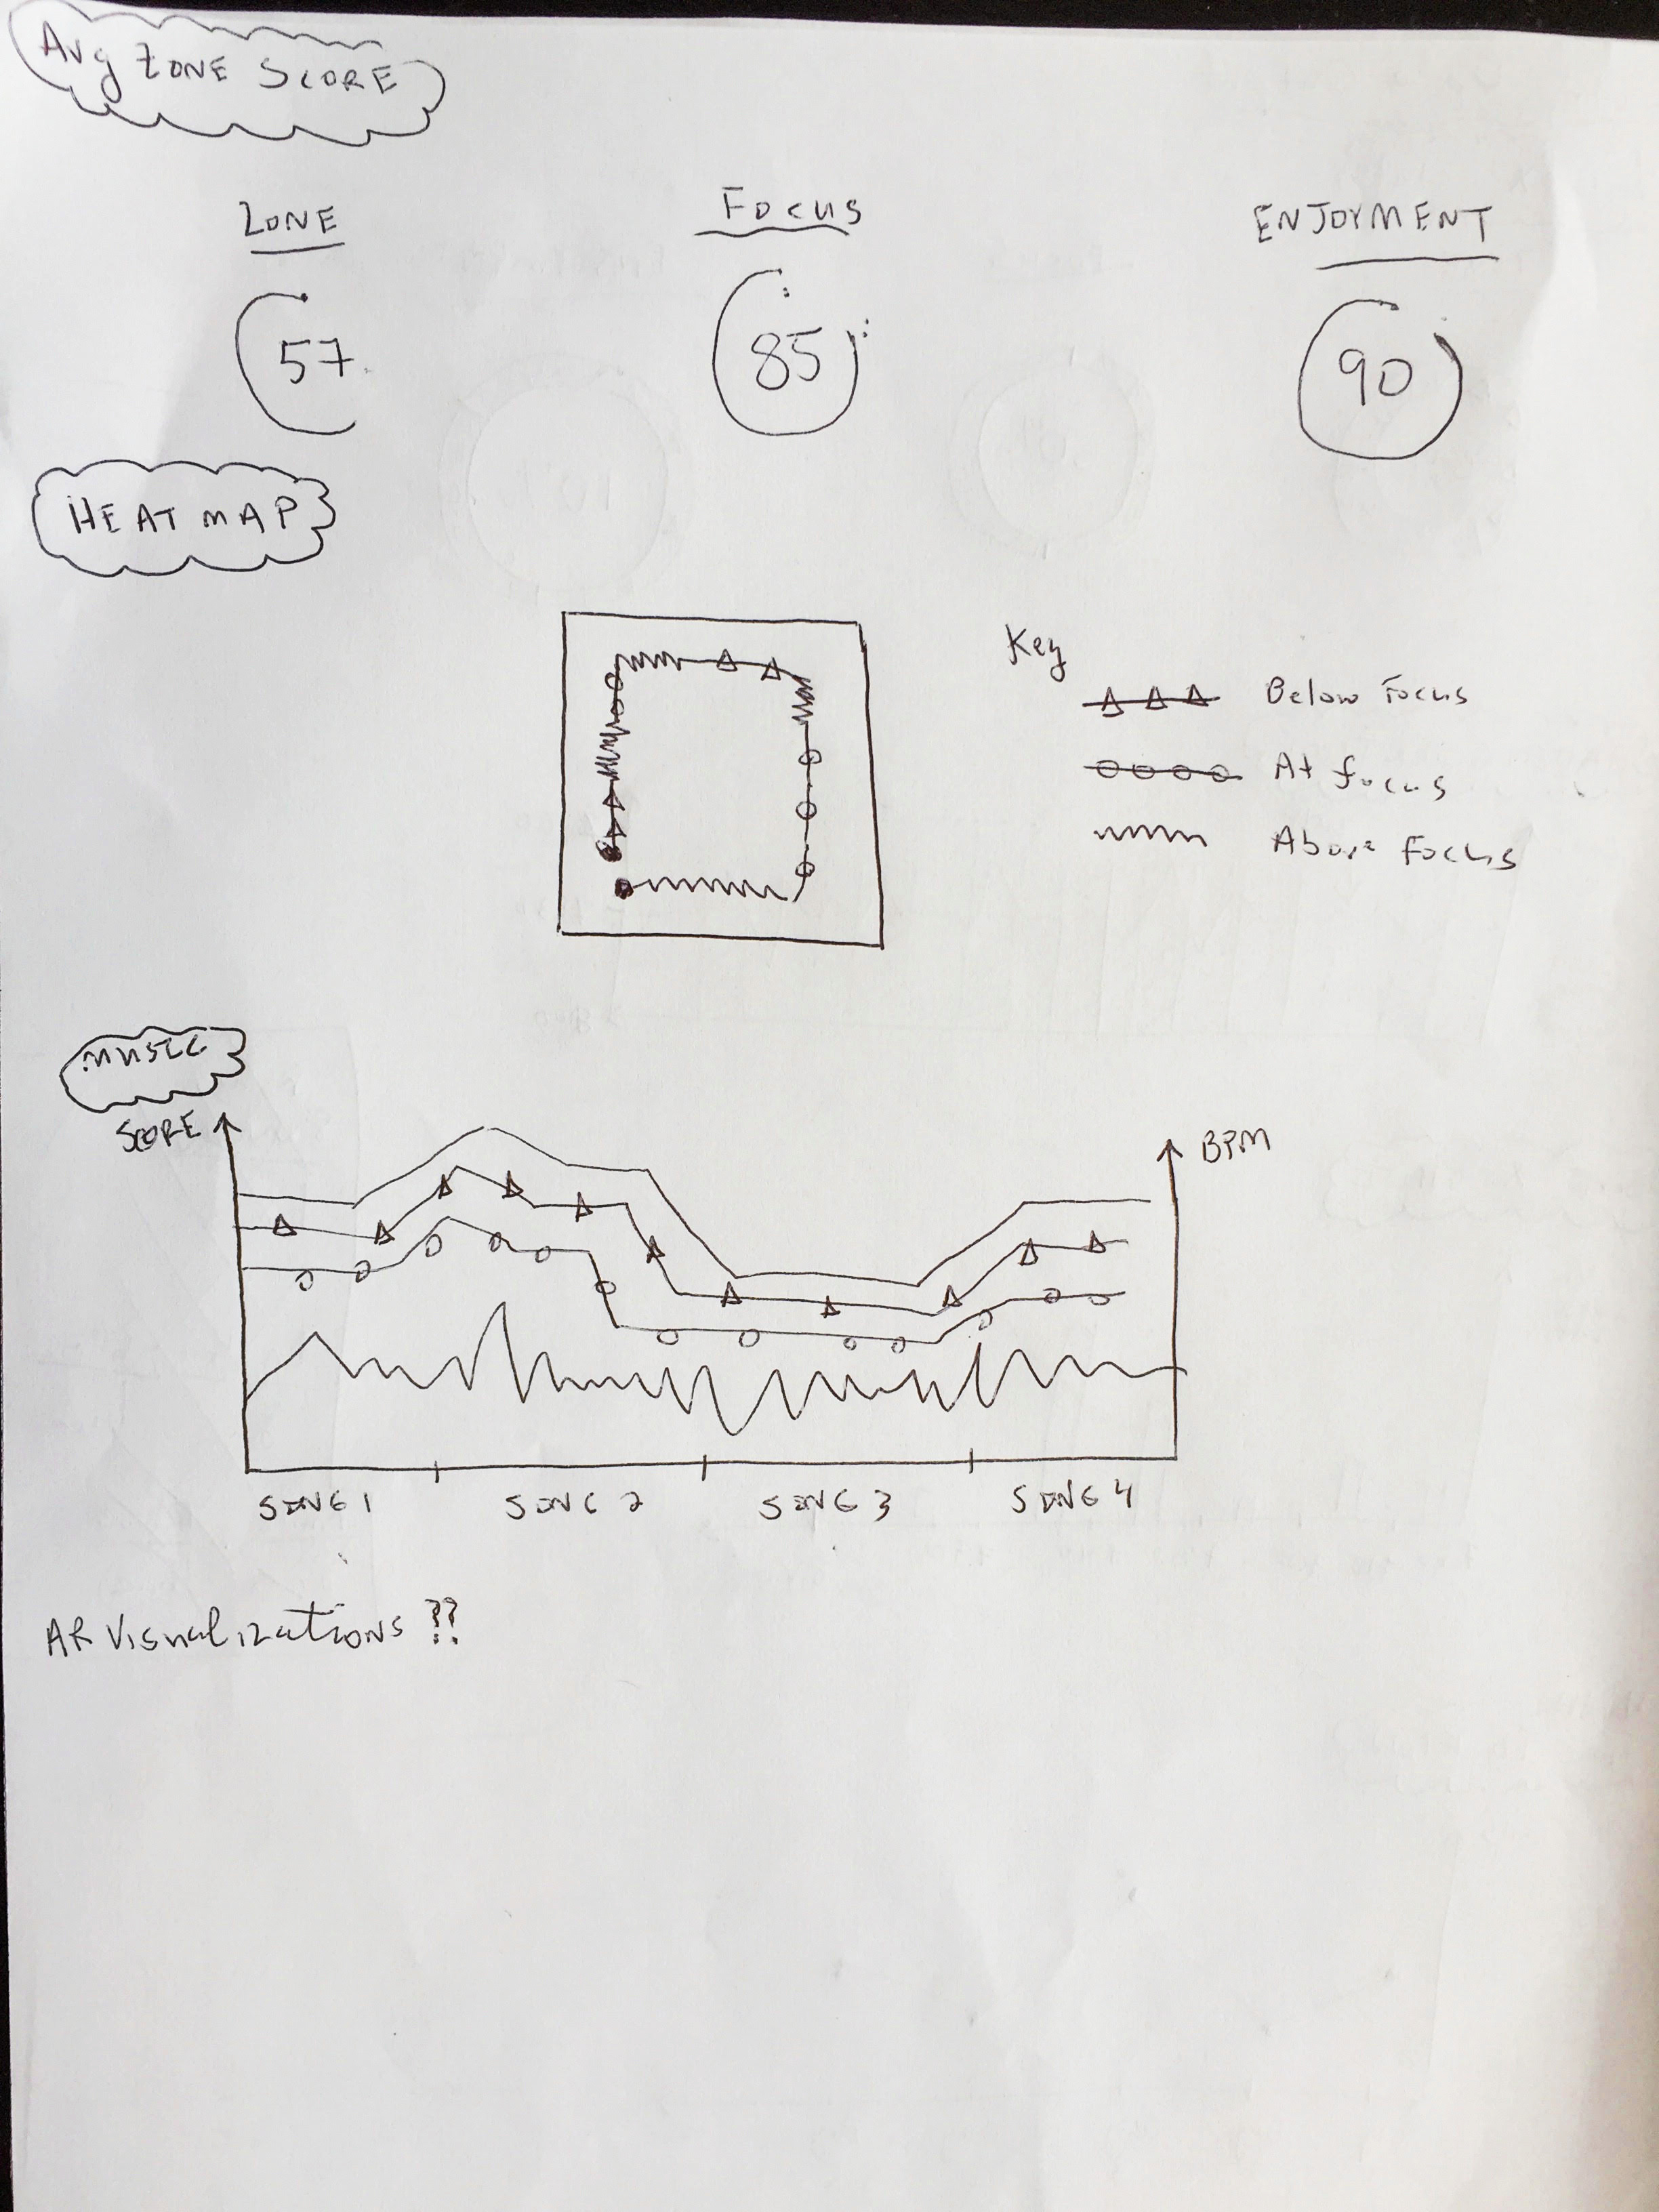 Avg ZONE SCORE
ZONE
FOCUS
ENJOYMENT
57
85
90
HEAT MAP
Key
Below Focus
At focus
Above Focus
MUSIC
SCORE
BPM
SONG 1
SONG 2
SONG 3
SONG 4
AR Visualizations ??